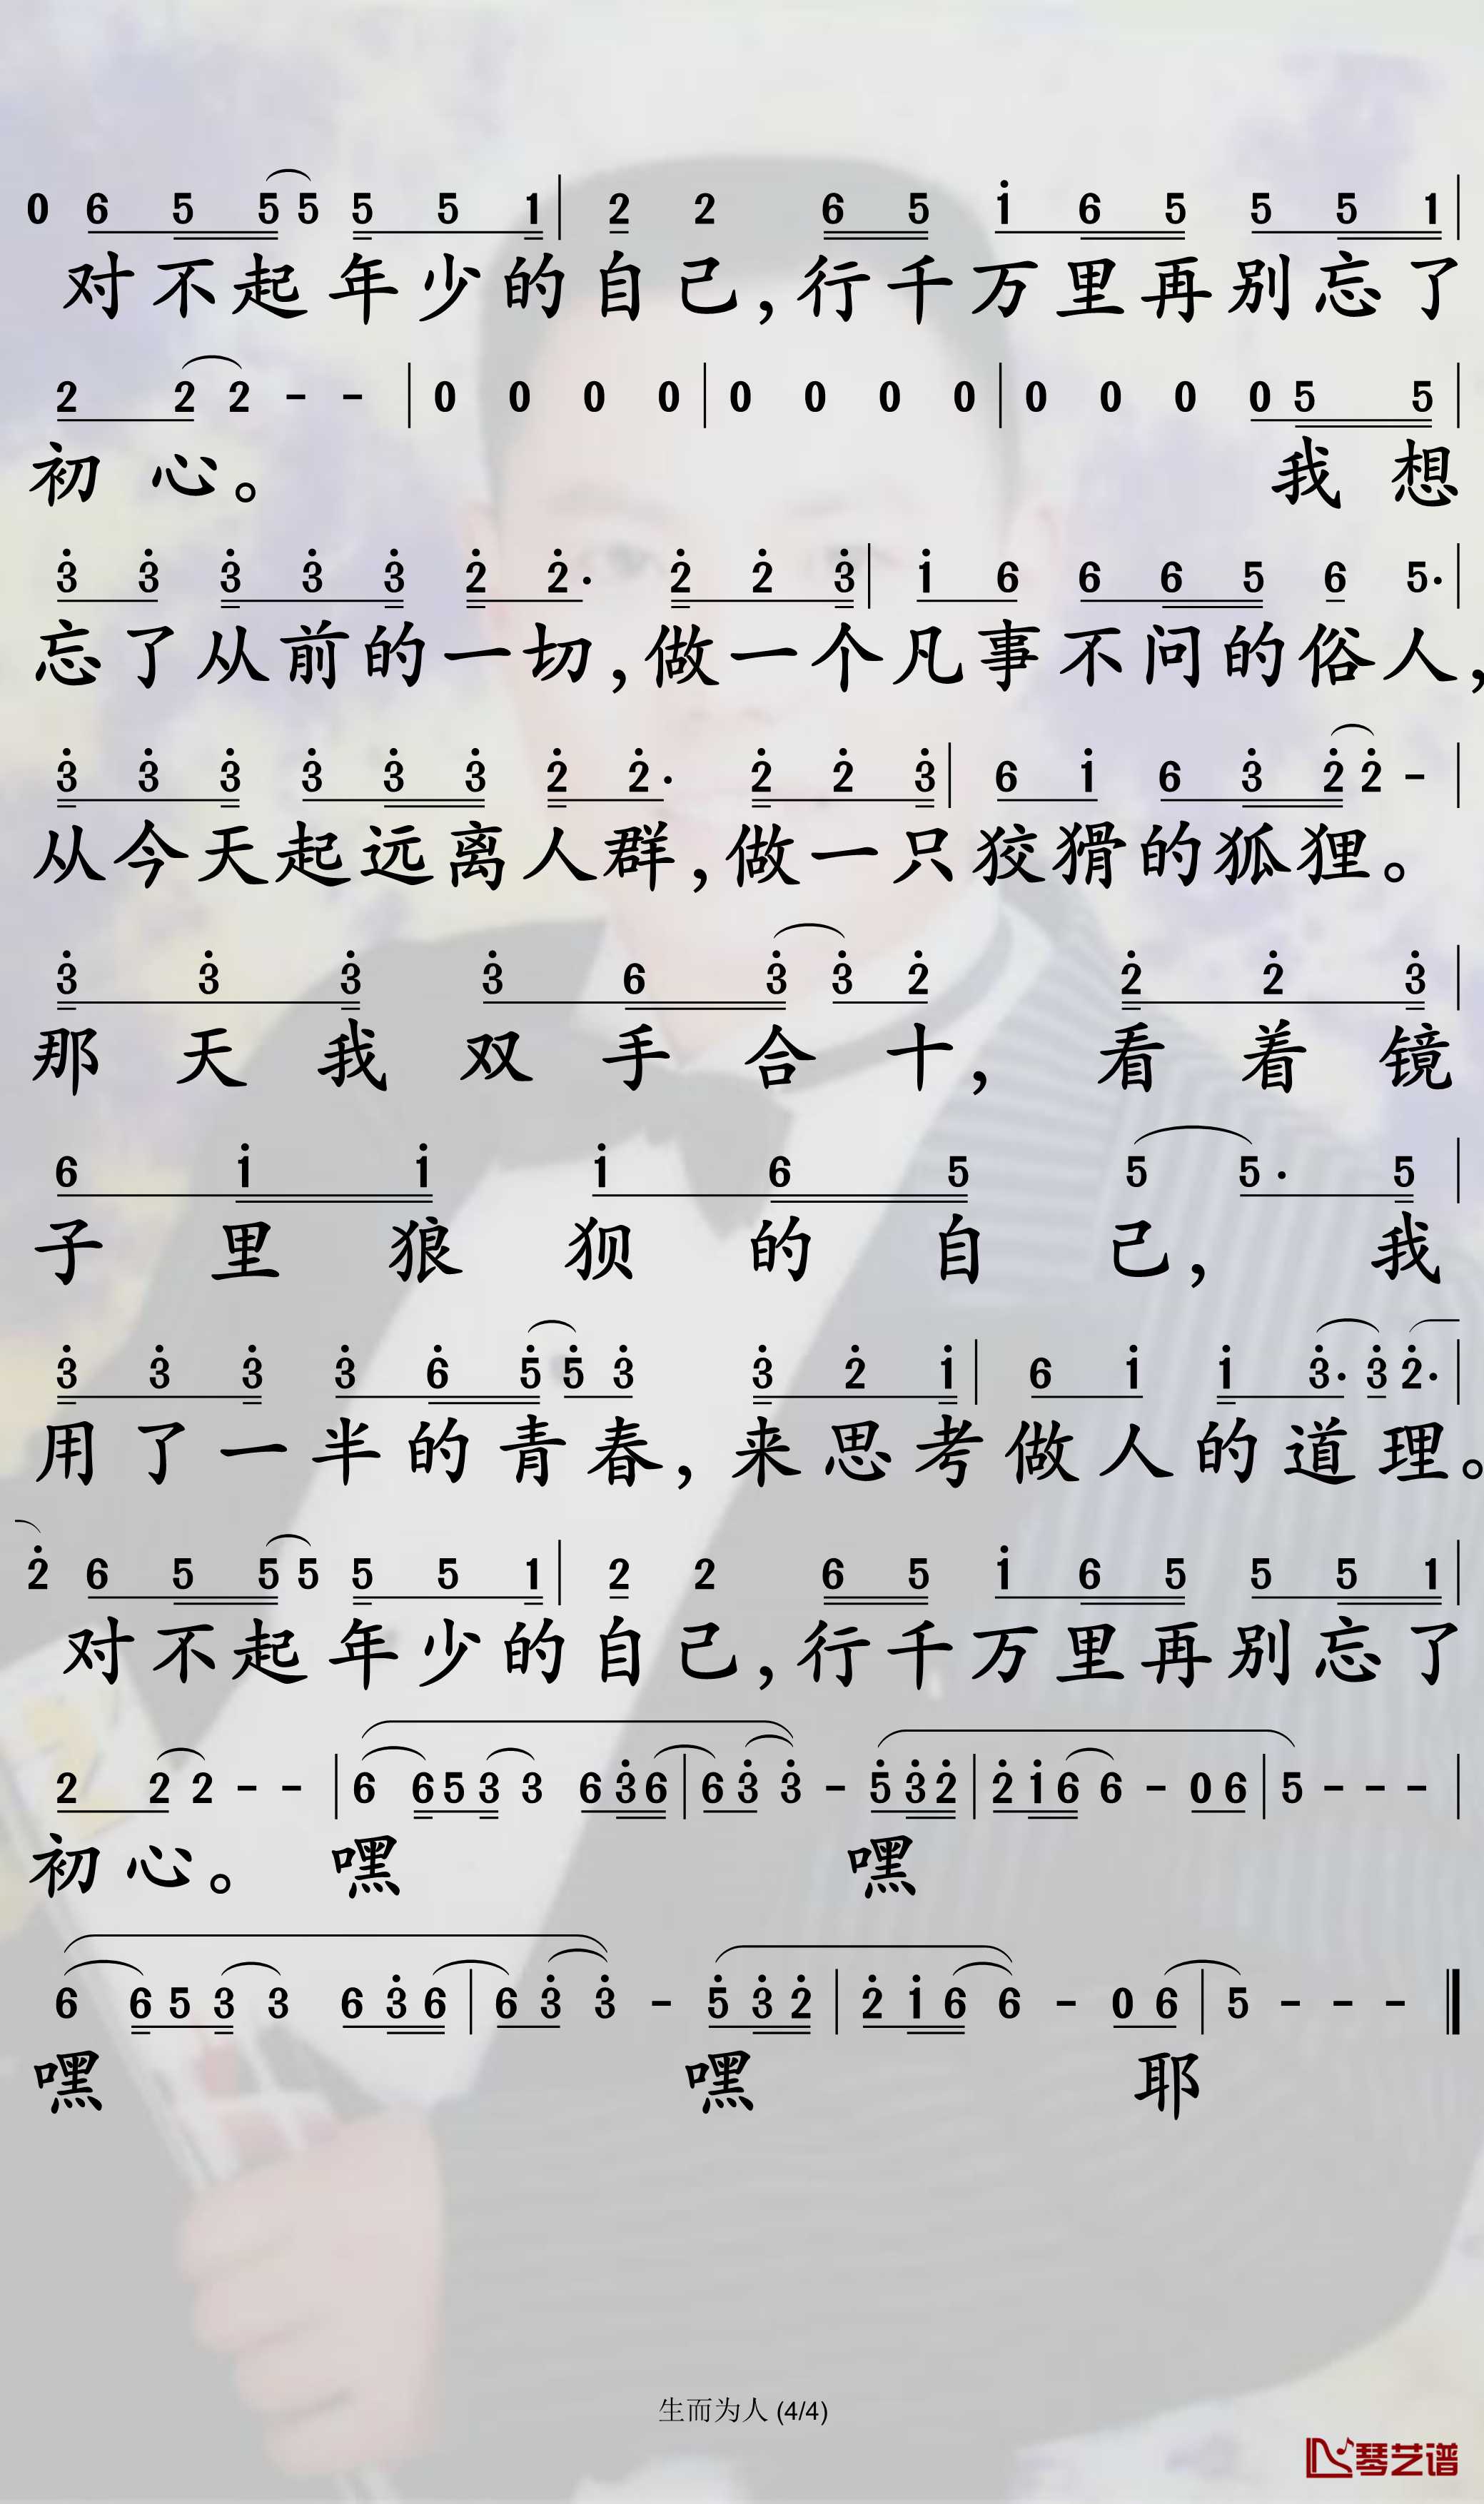 0 6 5 5 5 5 5 1 | 2 2 6 5 1 6 5 5 5 1 |
对不起年少的自己,行千万里再别忘了
2 2 2 - - | 0 0 0 0 | 0 0 0 0 | 0 0 0 0 5 5 |
初心。 我想
3 3 3 3 3 2 2· 2 2 3 | 1 6 6 6 5 6 5· |
忘了从前的一切,做一个凡事不问的俗人,
3 3 3 3 3 3 2 2· 2 2 3 | 6 1 6 3 2 2 - |
从今天起远离人群,做一只狡猾的狐狸。
3 3 3 3 6 3 3 2 2 2 3 |
那天我双手合十,看着镜
6 1 1 1 6 5 5 5· 5 |
子里狼狈的自己,我
3 3 3 3 6 5 5 3 3 2 1 | 6 1 1 3· 3 2· |
用了一半的青春,来思考做人的道理。
2 6 5 5 5 5 5 1 | 2 2 6 5 1 6 5 5 5 1 |
对不起年少的自己,行千万里再别忘了
2 2 2 - - | 6 6 5 3 3 6 3 6 | 6 3 3 - 5 3 2 | 2 1 6 6 - 0 6 | 5 - - - |
初心。嘿 嘿
6 6 5 3 3 6 3 6 | 6 3 3 - 5 3 2 | 2 1 6 6 - 0 6 | 5 - - - ‖
嘿 嘿 耶
生而为人 (4/4)
琴艺谱